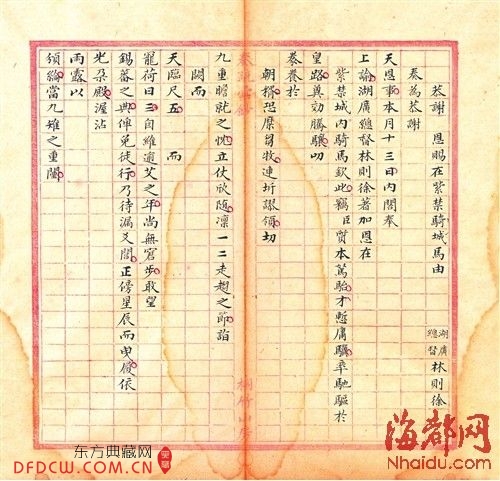 恭謝　恩賜在紫禁騎城馬由
湖廣總督　林則徐
奏為恭謝
天恩事本月十三日内閣奉
上諭湖廣總督林則徐著加恩在
紫禁城内騎馬欽此竊臣質本駑駘才慙庸驥率馳驅於
皇路莫効騰驤叨
豢養於
朝
恐縻芻牧連圻謬領切
九重瞻就之忱立仗欣隨凜一二走趨之節詣
闕而
天臨尺五　而
寵荷日三自維適艾之年尚無窘步敢望
錫蕃之典俾免徒行乃待漏
正傍星辰而曳履依
光朵殿渥沾
雨露以
領
當九雉之重闉
海都网
Nhaidu.com
东方典藏网
DFDCW.COM.CN